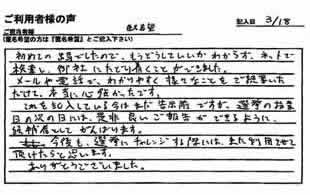 ご利用者様の声
記入日 3/18
ご芳名様
(匿名希望の方は「匿名希望」とご記入下さい) 匿名希望
初めての出馬でしたので、もうどうしていいかわからず、ネットで
検索し、御社にたどり着くことができました。
メールや電話で、わかりやすく様々なことをご提案いた
だけて、本当に心強かったです。
これを記入している今はまだ告示前ですが、選挙の投票
日の次の日には、是非良いご報告ができるように、
候補者としてがんばります。
今後も、選挙にチャレンジする際には、また利用させて
頂けたらと思います。
ありがとうございました。